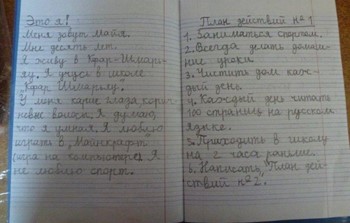 Это я!
Меня зовут Майя.
Мне десять лет.
Я живу в Кфар-Шмарь-
яу. Я учусь в школе
Кфар Шмарьяу.
У меня карие глаза, корич-
невые волосы. Я думаю,
что я умная. Я люблю
играть в Майнкрафт
(игра на компьютере). Я
не люблю спорт.
План действий №1
1. Заниматься спортом.
2. Всегда делать домаш-
ние уроки.
3. Чистить дом каж-
дый день.
4. Каждый день читать
100 страниц на русском
языке.
5. Приходить в школу
на 2 часа раньше.
6. Написать "План дей-
ствий №2".